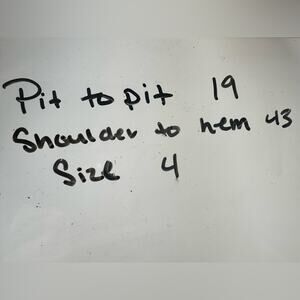 Pit to pit 19
Shoulder to hem 43
Size 4